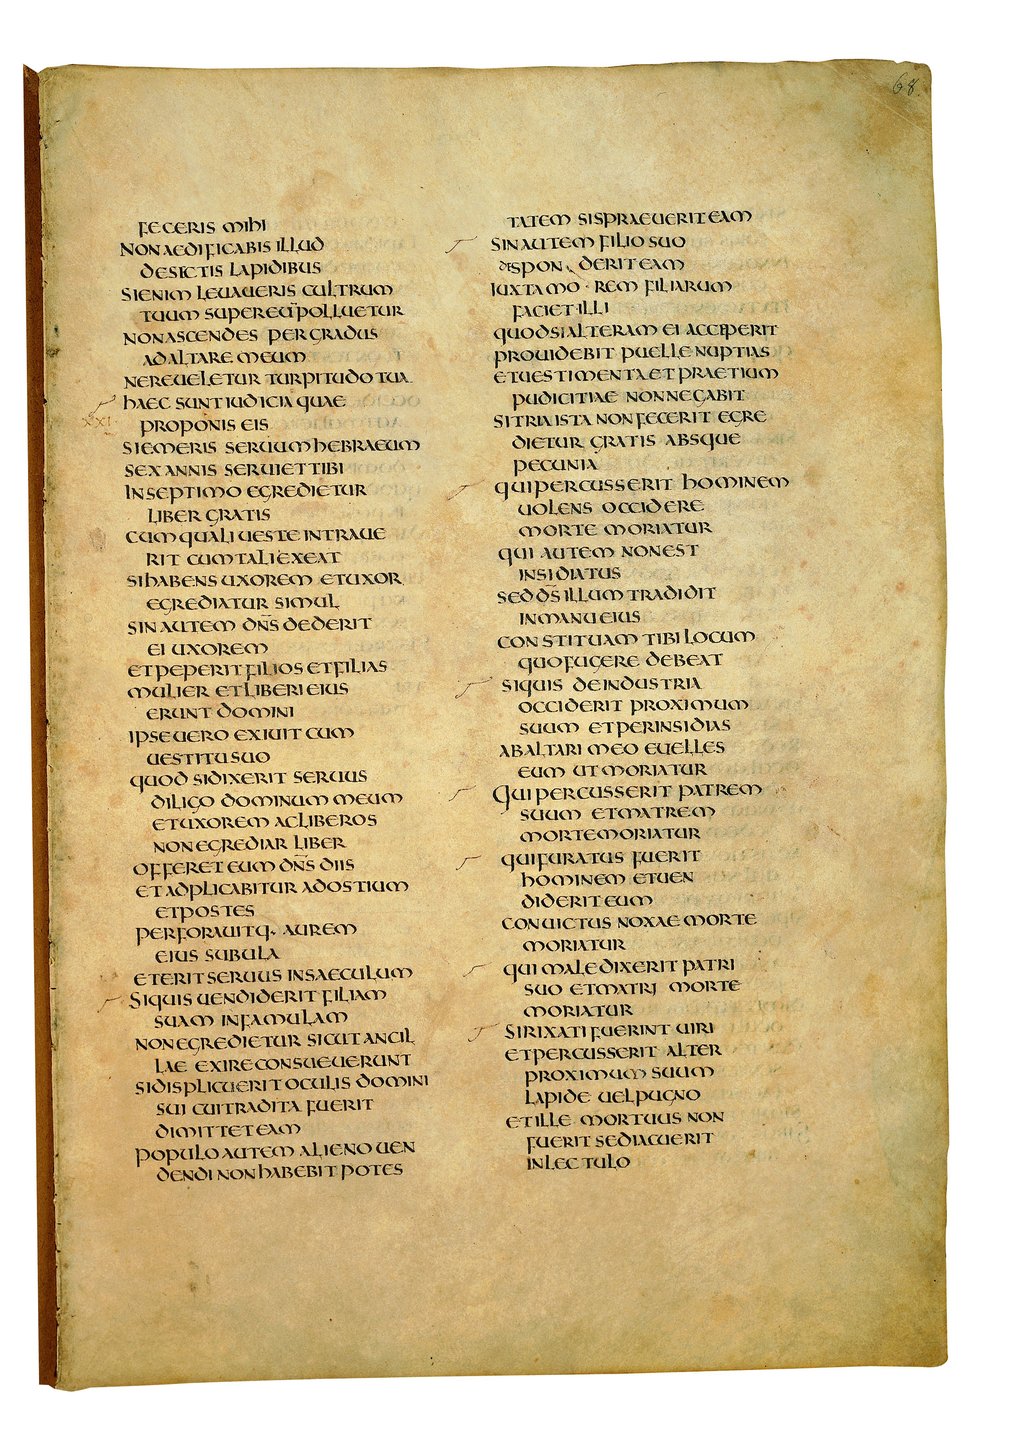 68
FECERIS MIHI
NON AEDIFICABIS ILLUD
DE SECTIS LAPIDIBUS
SI ENIM LEVAUERIS CULTRUM
TUUM SUPER EO POLLUETUR
NON ASCENDES PER GRADUS
AD ALTARE MEUM
NE REUELETUR TURPITUDO TUA
HAEC SUNT IUDICIA QUAE
XXI
PROPONIS EIS
SI EMERIS SERUUM HEBRAEUM
SEX ANNIS SERUIET TIBI
IN SEPTIMO EGREDIETUR
LIBER GRATIS
CUM QUALI UESTE INTRAUE
RIT CUM TALI EXEAT
SI HABENS UXOREM ET UXOR
EGREDIATUR SIMUL
SIN AUTEM DN̄S DEDERIT
EI UXOREM
ET PEPERIT FILIOS ET FILIAS
MULIER ET LIBERI EIUS
ERUNT DOMINI
IPSE UERO EXIUIT CUM
UESTITU SUO
QUOD SI DIXERIT SERUUS
DILIGO DOMINUM MEUM
ET UXOREM AC LIBEROS
NON EGREDIAR LIBER
OFFERET EUM DN̄S DIIS
ET ADPLICABITUR AD OSTIUM
ET POSTES
PERFORAUITQ· AUREM
EIUS SUBULA
ET ERIT SERUUS IN SAECULUM
SI QUIS UENDIDERIT FILIAM
SUAM IN FAMULAM
NON EGREDIETUR SICUT ANCIL
LAE EXIRE CONSUEUERUNT
SI DISPLICUERIT OCULIS DOMINI
SUI CUI TRADITA FUERIT
DIMITTET EAM
POPULO AUTEM ALIENO UEN
DENDI NON HABEBIT POTES
TATEM SI SPRAEUERIT EAM
SIN AUTEM FILIO SUO
DESPONDERIT EAM
IUXTA MOREM FILIARUM
FACIET ILLI
QUOD SI ALTERAM EI ACCIPERIT
PROUIDEBIT PUELLE NUPTIAS
ET UESTIMENTA ET PRAETIUM
PUDICITIAE NON NEGABIT
SI TRIA ISTA NON FECERIT EGRE
DIETUR GRATIS ABSQUE
PECUNIA
QUI PERCUSSERIT HOMINEM
UOLENS OCCIDERE
MORTE MORIATUR
QUI AUTEM NON EST
INSIDIATUS
SED D̄S ILLUM TRADIDIT
IN MANU EIUS
CONSTITUAM TIBI LOCUM
QUO FUGERE DEBEAT
SI QUIS DE INDUSTRIA
OCCIDERIT PROXIMUM
SUUM ET PER INSIDIAS
AB ALTARI MEO EUELLES
EUM UT MORIATUR
QUI PERCUSSERIT PATREM
SUUM ET MATREM
MORTE MORIATUR
QUI FURATUS FUERIT
HOMINEM ET UEN
DIDERIT EUM
CONUICTUS NOXAE MORTE
MORIATUR
QUI MALEDIXERIT PATRI
SUO ET MATRI MORTE
MORIATUR
SI RIXATI FUERINT UIRI
ET PERCUSSERIT ALTER
PROXIMUM SUUM
LAPIDE UEL PUGNO
ET ILLE MORTUUS NON
FUERIT SED IACUERIT
IN LECTULO